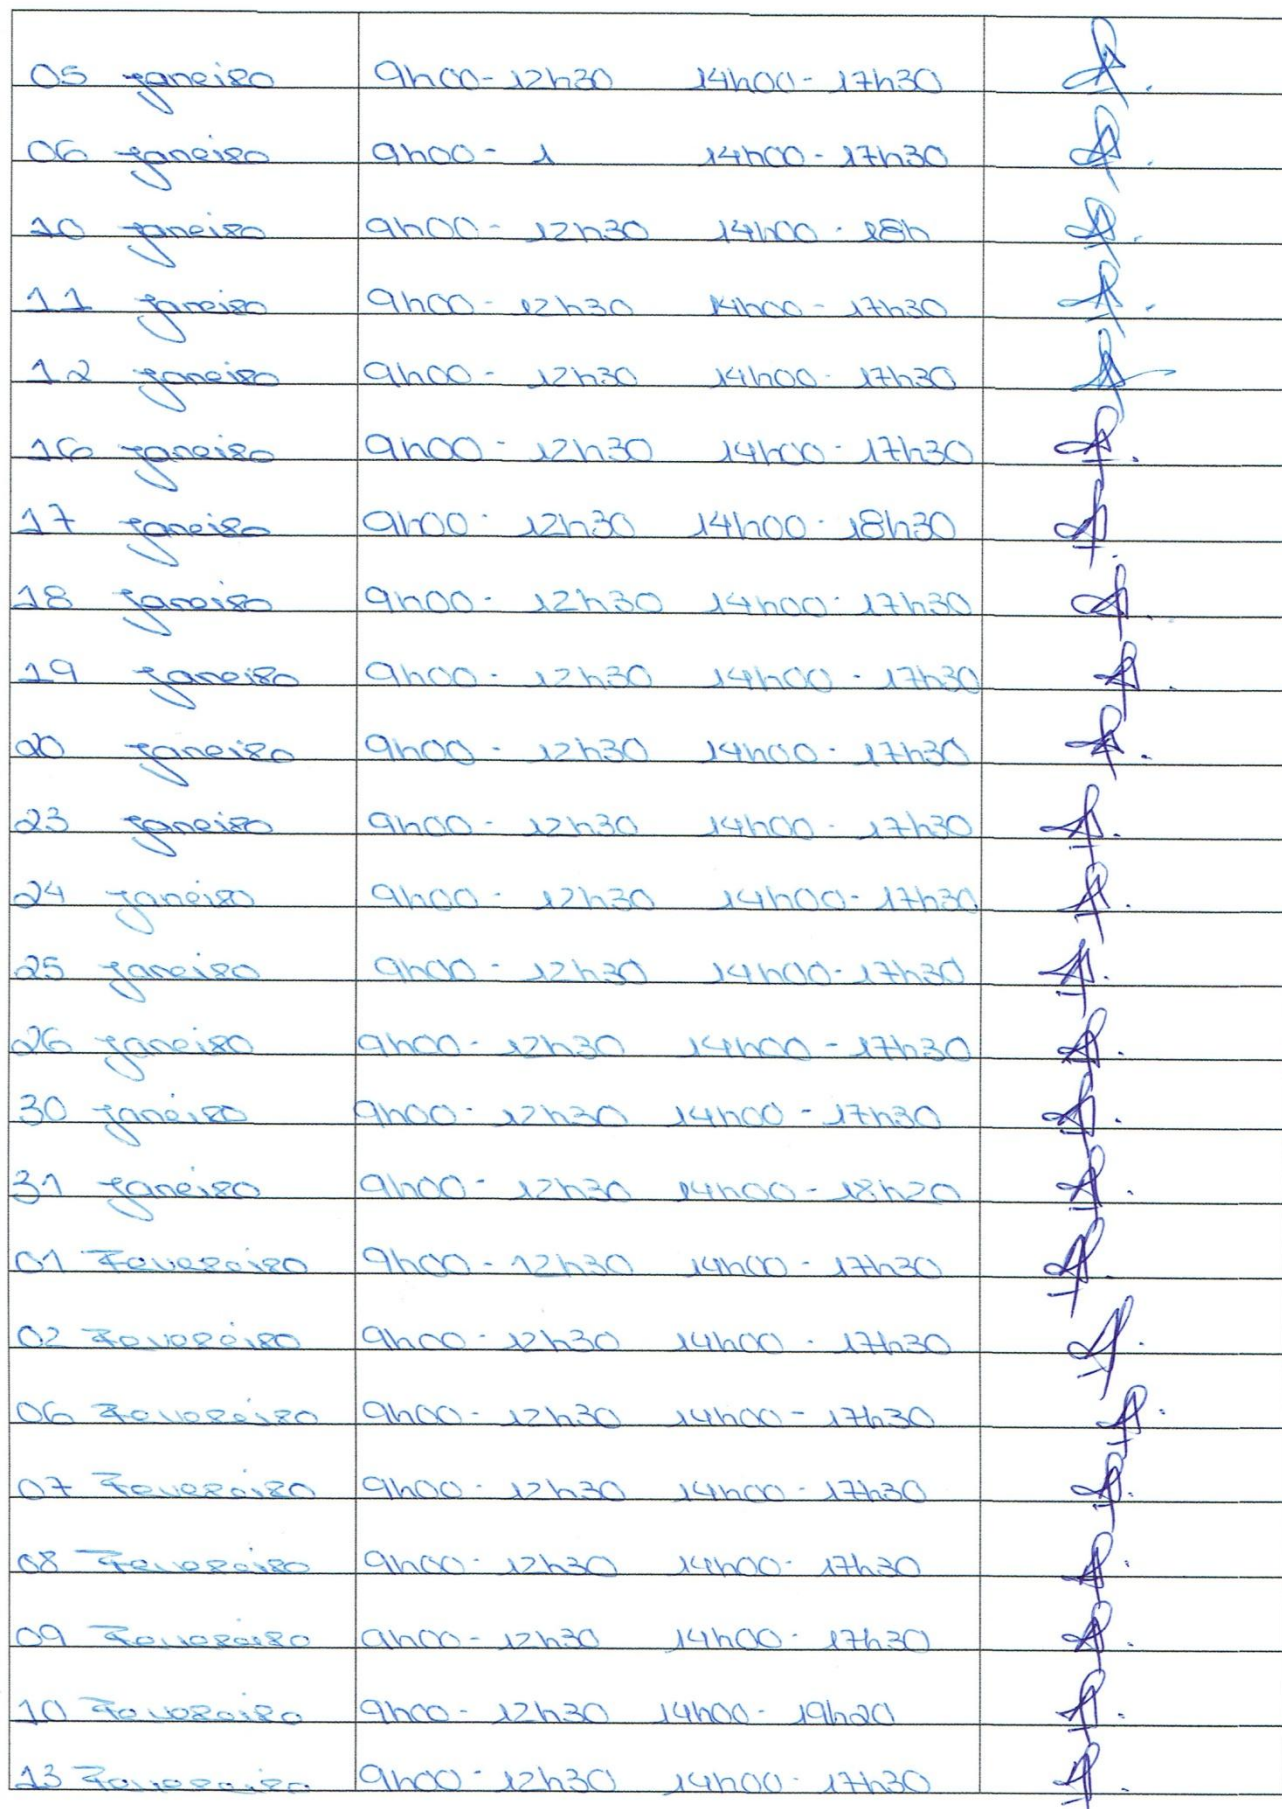 05 janeiro 9h00-12h30 14h00-17h30
06 janeiro 9h00-1 14h00-17h30
10 janeiro 9h00-12h30 14h00-18h
11 janeiro 9h00-12h30 14h00-17h30
12 janeiro 9h00-12h30 14h00-17h30
16 janeiro 9h00-12h30 14h00-17h30
17 janeiro 9h00-12h30 14h00-18h30
18 janeiro 9h00-12h30 14h00-17h30
19 janeiro 9h00-12h30 14h00-17h30
20 janeiro 9h00-12h30 14h00-17h30
23 janeiro 9h00-12h30 14h00-17h30
24 janeiro 9h00-12h30 14h00-17h30
25 janeiro 9h00-12h30 14h00-17h30
26 janeiro 9h00-12h30 14h00-17h30
30 janeiro 9h00-12h30 14h00-17h30
31 janeiro 9h00-12h30 14h00-18h20
01 Fevereiro 9h00-12h30 14h00-17h30
02 Fevereiro 9h00-12h30 14h00-17h30
06 Fevereiro 9h00-12h30 14h00-17h30
07 Fevereiro 9h00-12h30 14h00-17h30
08 Fevereiro 9h00-12h30 14h00-17h30
09 Fevereiro 9h00-12h30 14h00-17h30
10 Fevereiro 9h00-12h30 14h00-19h20
13 Fevereiro 9h00-12h30 14h00-17h30